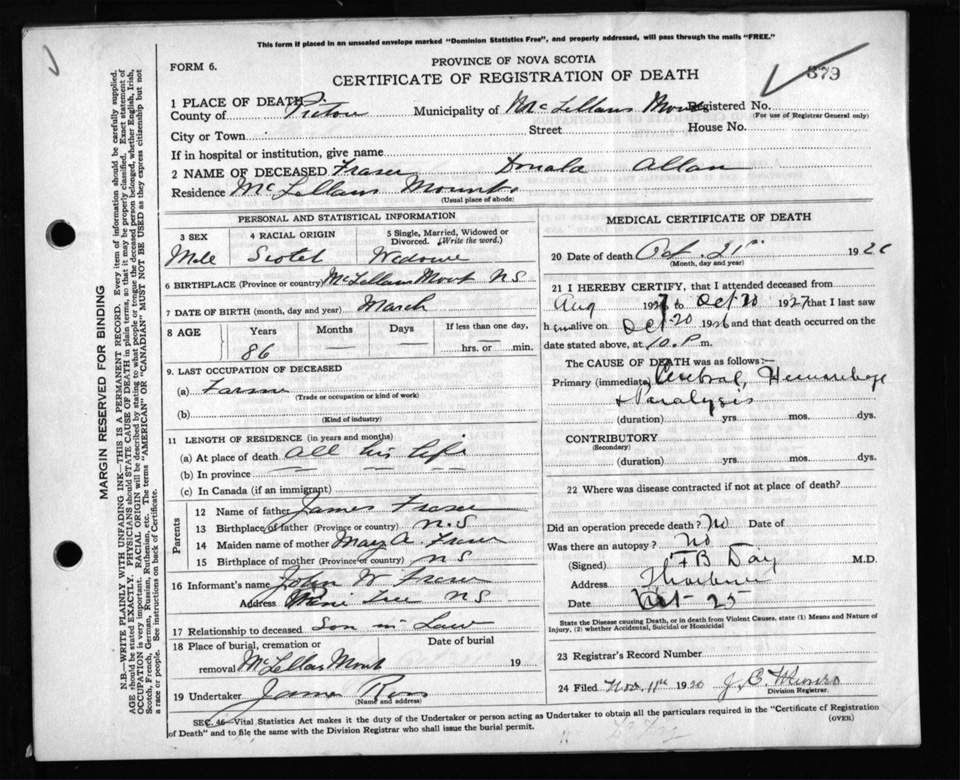 This form if placed in an unsealed envelope marked "Dominion Statistics Free", and properly addressed, will pass through the mails "FREE."
FORM 6.
PROVINCE OF NOVA SCOTIA
CERTIFICATE OF REGISTRATION OF DEATH
879
1 PLACE OF DEATH
County of Pictou Municipality of McLellans Mount Registered No.
(For use of Registrar General only)
City or Town Street House No.
If in hospital or institution, give name
2 NAME OF DECEASED Fraser Donald Allan
Residence McLellans Mount
(Usual place of abode)
PERSONAL AND STATISTICAL INFORMATION
3 SEX 4 RACIAL ORIGIN 5 Single, Married, Widowed or Divorced. (Write the word.)
Male Scotch
6 BIRTHPLACE (Province or country) McLellans Mount N S
7 DATE OF BIRTH (month, day and year) March
8 AGE Years Months Days If less than one day,
86 hrs. or min.
9. LAST OCCUPATION OF DECEASED
(a) Farmer
(Trade or occupation or kind of work)
(b)
(Kind of industry)
11 LENGTH OF RESIDENCE (in years and months)
(a) At place of death all his life
(b) In province
(c) In Canada (if an immigrant)
Parents
12 Name of father James Fraser
13 Birthplace of father (Province or country) N.S
14 Maiden name of mother Mary A. Fraser
15 Birthplace of mother (Province or country) N S
16 Informant's name John W Fraser
Address Pine Tree N S
17 Relationship to deceased Son in Law
18 Place of burial, cremation or Date of burial
removal McLellans Mount 19
19 Undertaker James
(Name and address)
MEDICAL CERTIFICATE OF DEATH
20 Date of death Oct. 21st 1926
(Month, day and year)
21 I HEREBY CERTIFY, that I attended deceased from
Aug 192 to Oct 20 1927 that I last saw
h alive on Oct 20 1926 and that death occurred on
date stated above, at 10. P. m.
The CAUSE OF DEATH was as follows:—
Primary (immediate) Cerebral Hemorrhage
& Paralysis
(duration) yrs. mos. dys.
CONTRIBUTORY
(Secondary)
(duration) yrs. mos. dys.
22 Where was disease contracted if not at place of death?
Did an operation precede death? No Date of
Was there an autopsy? No
(Signed) F B Day M.D.
Address Thorburn
Date Oct- 25-
State the Disease causing Death, or in death from Violent Causes, state (1) Means and Nature of
Injury, (2) whether Accidental, Suicidal or Homicidal
23 Registrar's Record Number
24 Filed Nov. 11th 19 J. B.
Division Registrar
SEC. 46—Vital Statistics Act makes it the duty of the Undertaker or person acting as Undertaker to obtain all the particulars required in the "Certificate of Registration
of Death" and to file the same with the Division Registrar who shall issue the burial permit.
(OVER)
MARGIN RESERVED FOR BINDING
N.B.—WRITE PLAINLY WITH UNFADING INK—THIS IS A PERMANENT RECORD. Every item of information should be carefully supplied.
AGE should be stated EXACTLY. PHYSICIANS should STATE CAUSE OF DEATH in plain terms, so that it may be properly classified. Exact statement of
OCCUPATION is very important. RACIAL ORIGIN will be described by stating to what people or tongue the deceased person belonged, whether English, Irish,
Scotch, French, German, Russian, Ruthenian, etc. The terms "AMERICAN" OR "CANADIAN" MUST NOT BE USED as they express citizenship but not
a race or people. See instructions on back of Certificate.